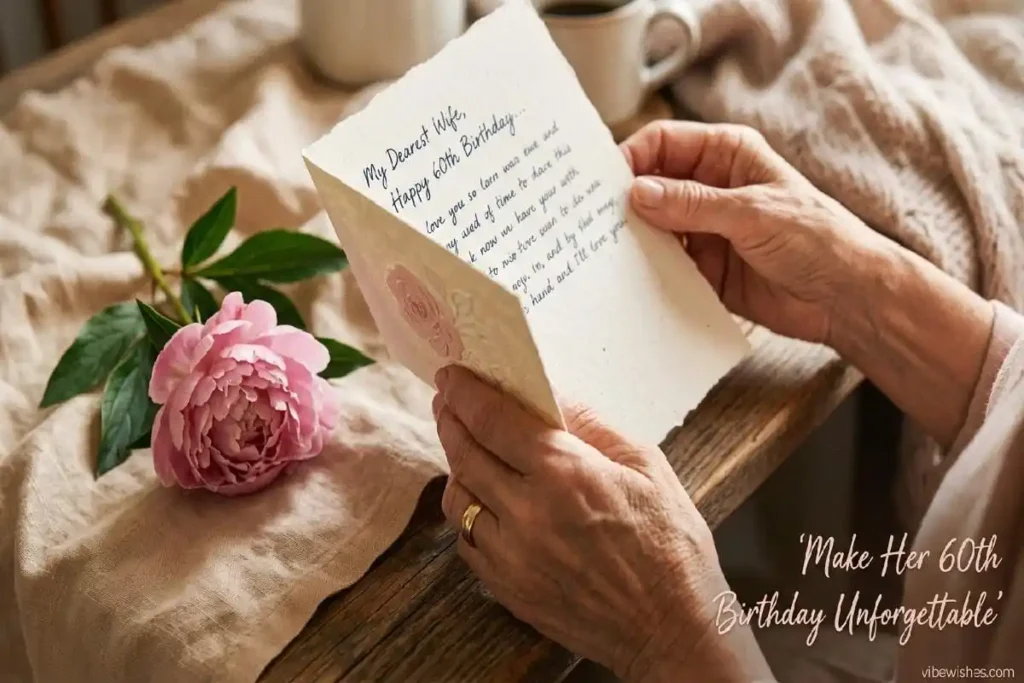 My Dearest Wife,
Happy 60th Birthday...
love you so lorn was eve and
ny aed of time to dare this
k now in have your with
to mo ture suan to do. was
argo. in, and by that mng,
hand and I'll love you
'Make Her 60th
Birthday Unforgettable'
vibewishes.com